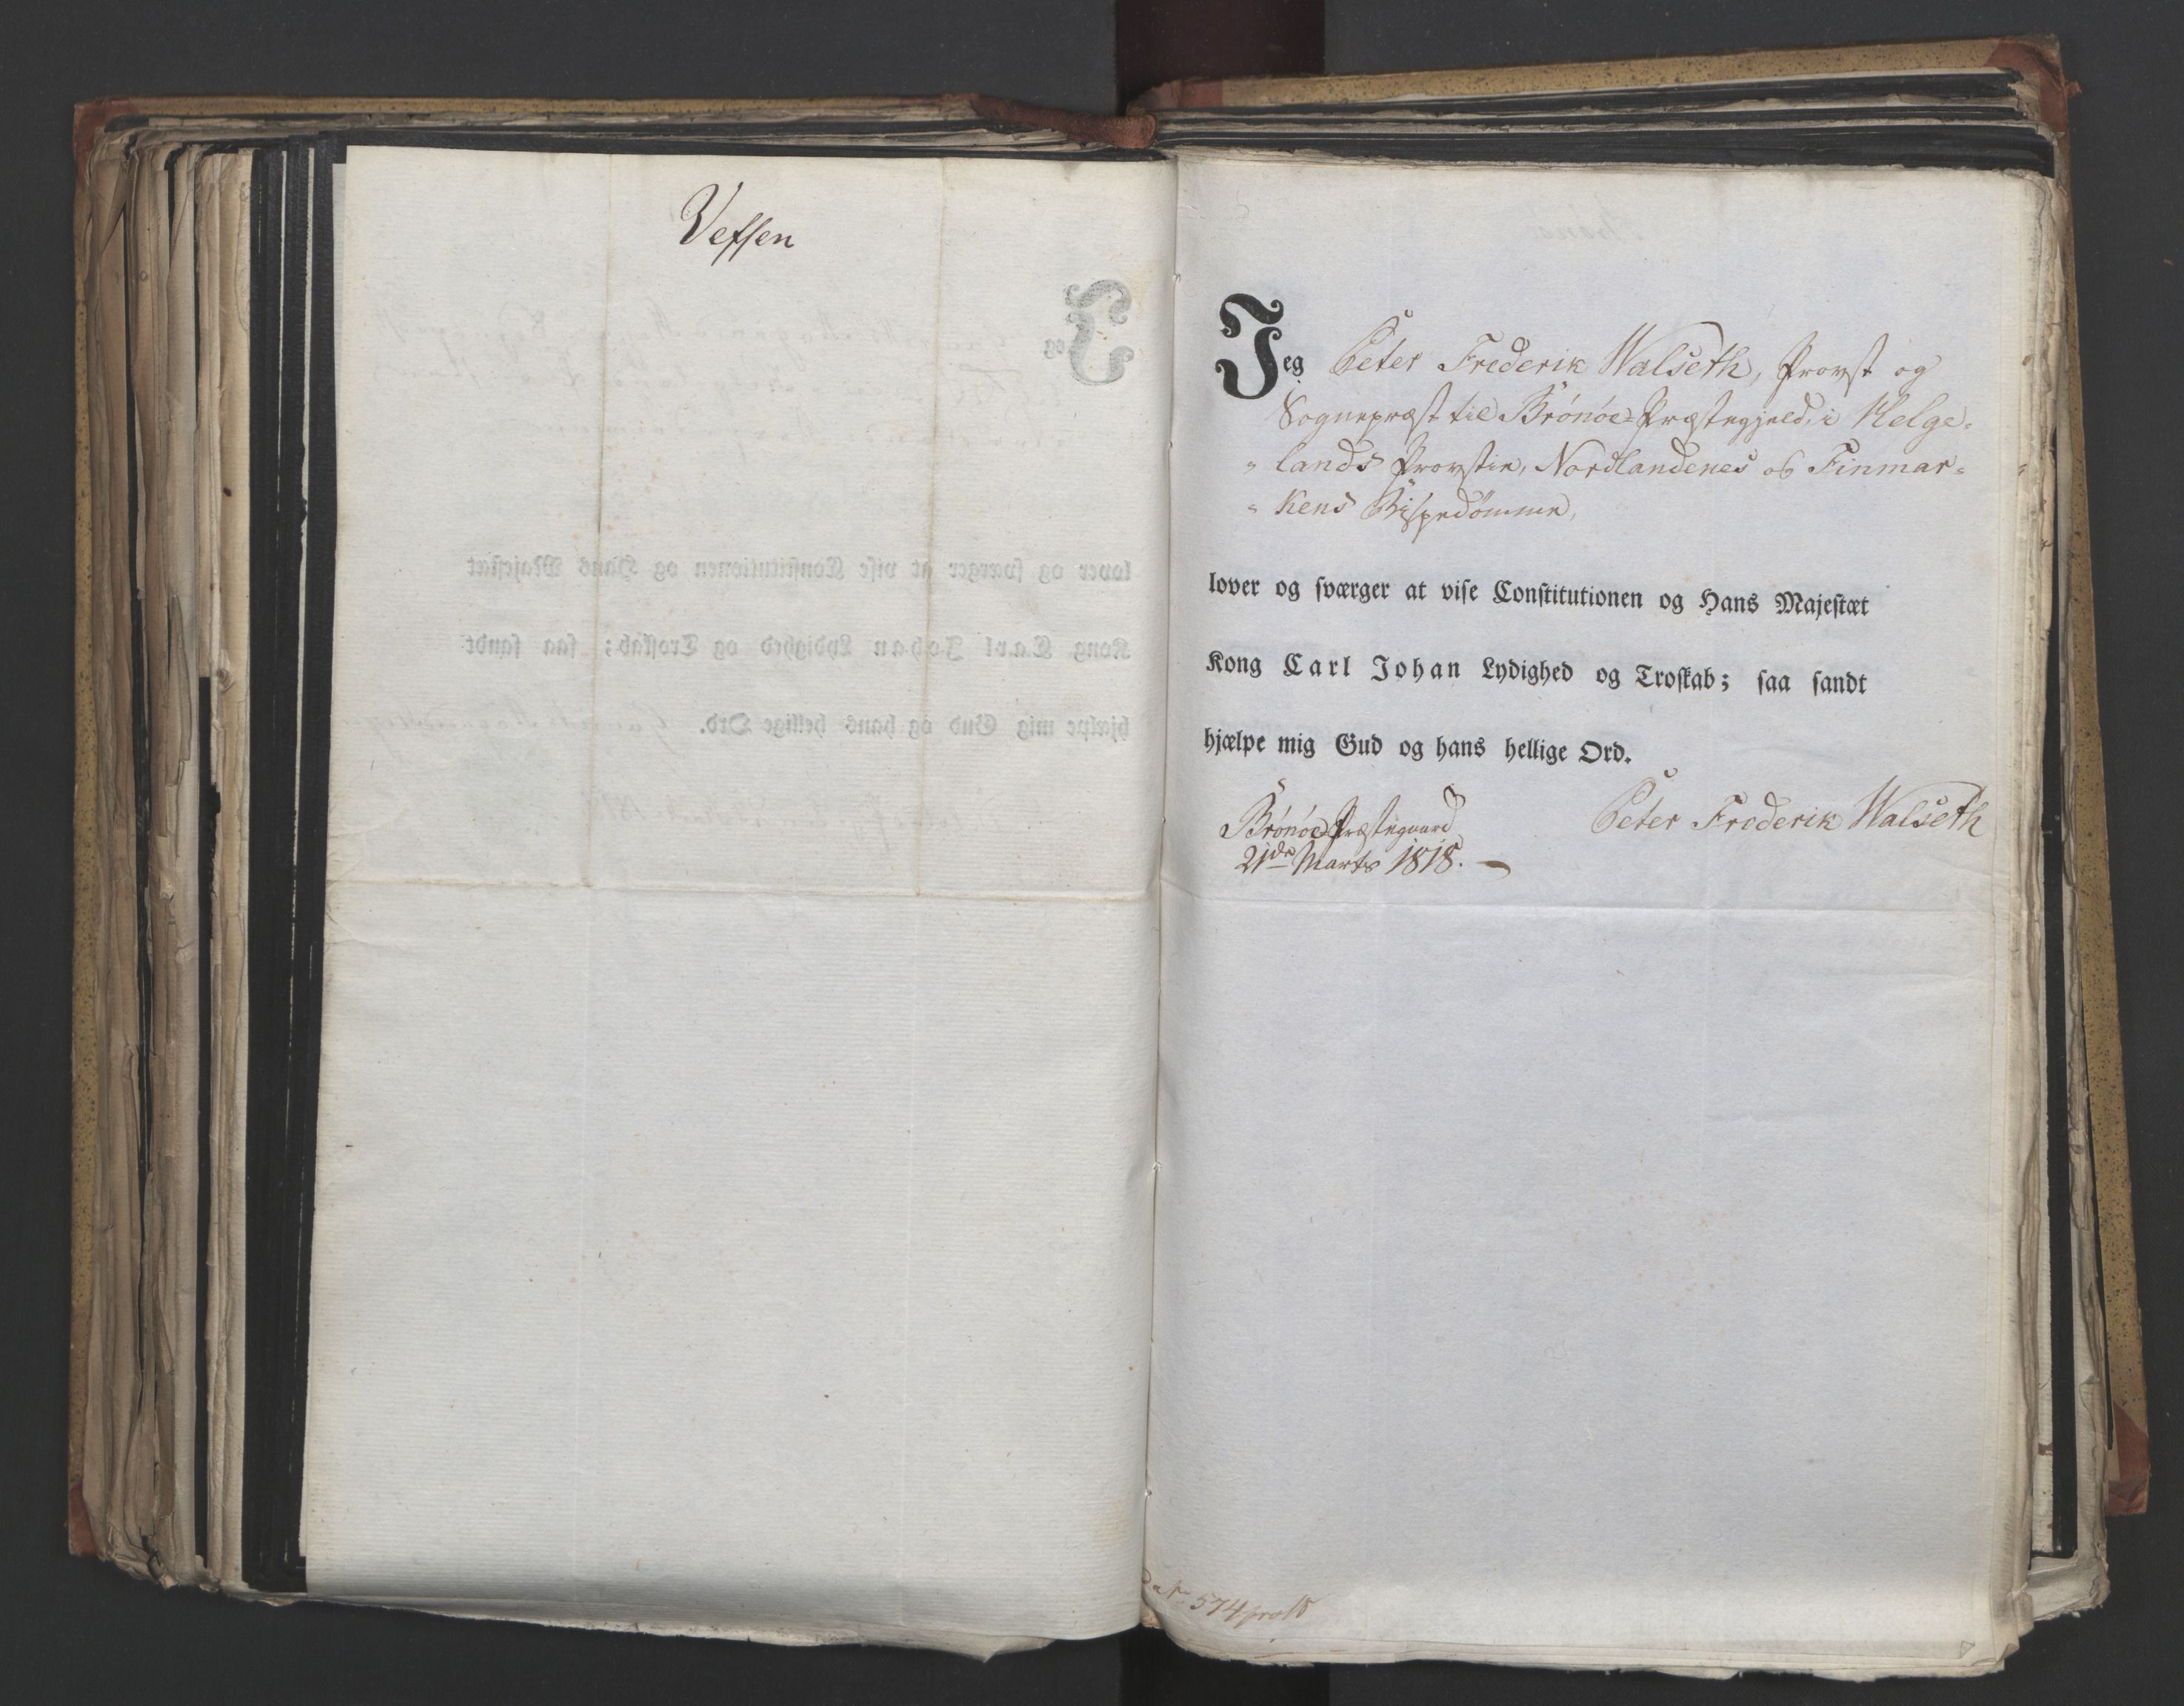 Vefsen
Jeg Peter Frederik Walseth, Provst og
Sognepræst til Brönöe-Præstegjeld, i Helge-
lands Provstie, Nordlandenes og Finmar-
kens Bispedömme,
lover og sværger at vise Constitutionen og Hans Majestæt
Kong Carl Johan Lydighed og Troskab; saa sandt
hjælpe mig Gud og hans hellige Ord.
Brönöe Præstegaard
21de Marts 1818.
Peter Frederik Walseth
574